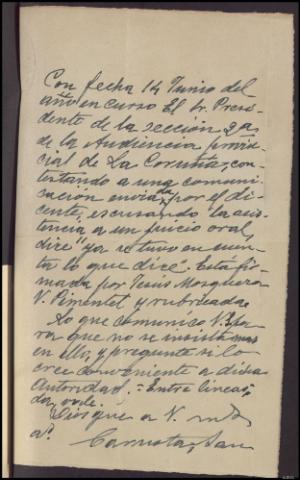 Con fecha 14 Junio del
año en curso El Sr. Presi-
dente de la sección 2ª
de la Audiencia provin-
cial de La Coruña, con-
testando a una comuni-
cación envia da por el di-
cente, escusando la asis-
tencia a un juicio oral,
dice "ya se tuvo en cuen-
ta lo que dice". Está fir-
mada por Jesús Mosquera
V. Pimentel y rubricada.
Lo que comunico V. pa-
ra que no se insista mas
en ello, y pregunte si lo
cree conveniente a dicha
Autoridad.- Entre lineas,
da, vale.
Dios que a V. m
aº.
Carnota, San